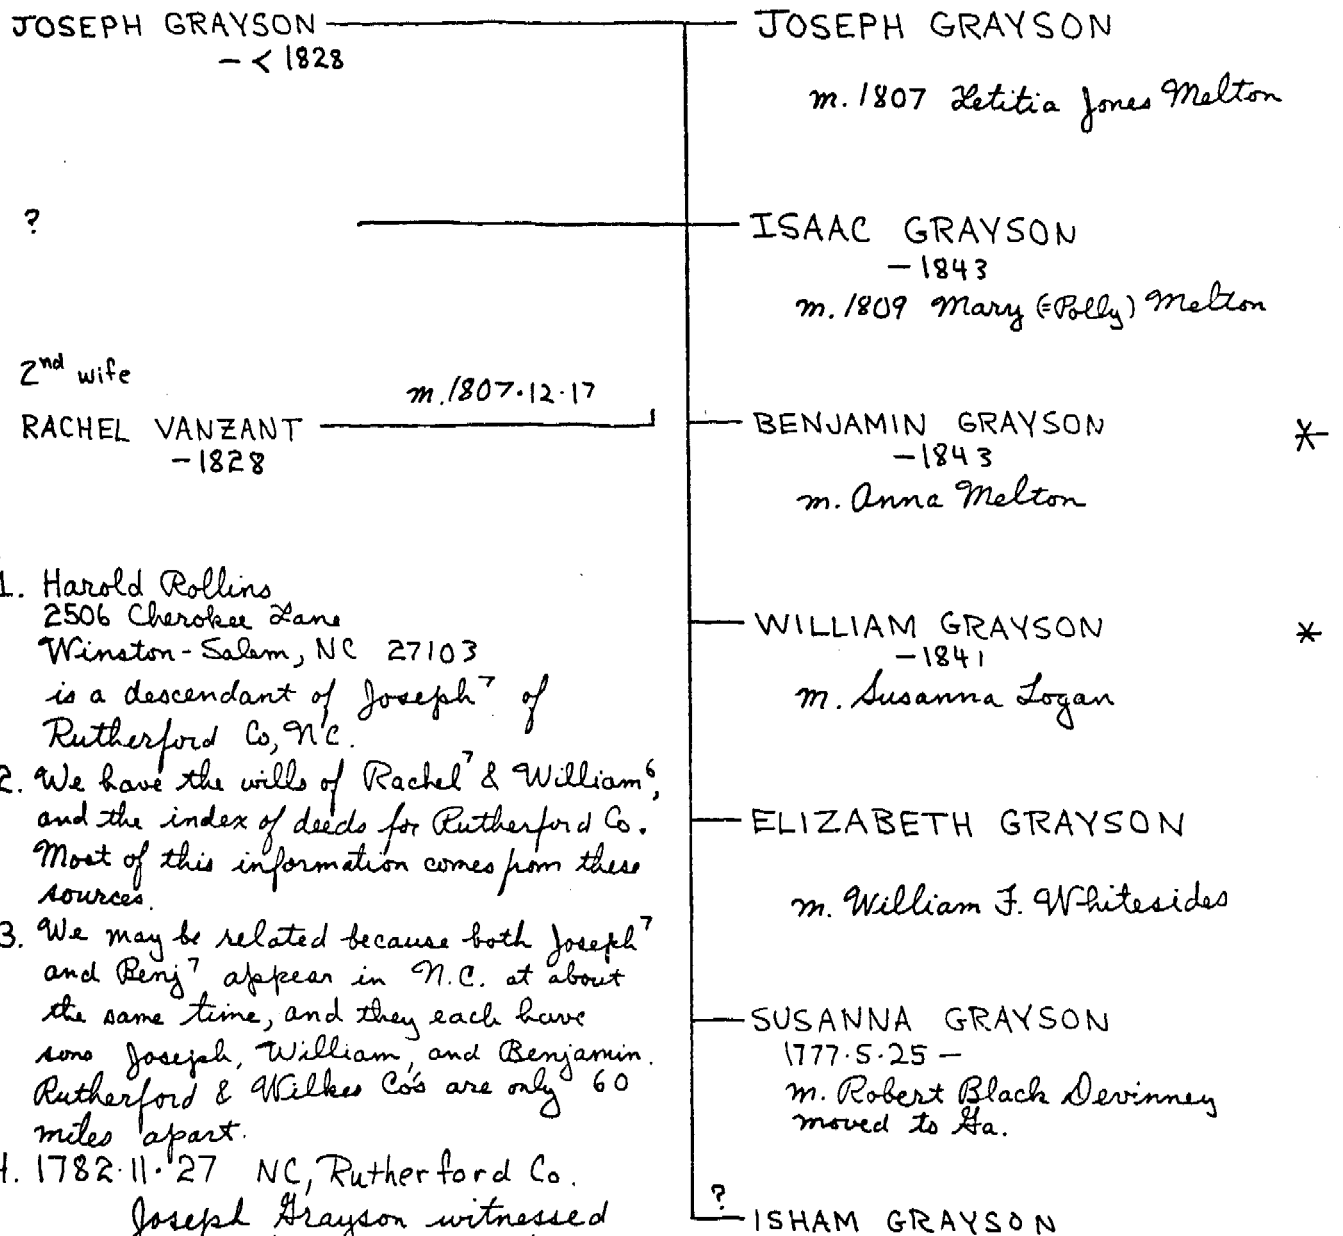 JOSEPH GRAYSON
- < 1828
?
2nd wife
m. 1807.12.17
RACHEL VANZANT
-1828
1. Harold Rollins
2506 Cherokee Lane
Winston-Salem, NC 27103
is a descendant of Joseph⁷ of
Rutherford Co, N.C.
2. We have the wills of Rachel⁷ & William⁶,
and the index of deeds for Rutherford Co.
Most of this information comes from these
sources.
3. We may be related because both Joseph⁷
and Benj⁷ appear in N.C. at about
the same time, and they each have
sons Joseph, William, and Benjamin.
Rutherford & Wilkes Co's are only 60
miles apart.
4. 1782.11.27 NC, Rutherford Co.
Joseph Grayson witnessed
JOSEPH GRAYSON
m. 1807 Letitia Jones Melton
ISAAC GRAYSON
-1843
m. 1809 Mary (=Polly) Melton
BENJAMIN GRAYSON *
-1843
m. Anna Melton
WILLIAM GRAYSON *
-1841
m. Susanna Logan
ELIZABETH GRAYSON
m. William F. Whitesides
SUSANNA GRAYSON
1777.5.25 -
m. Robert Black Devinney
moved to Ga.
? ISHAM GRAYSON